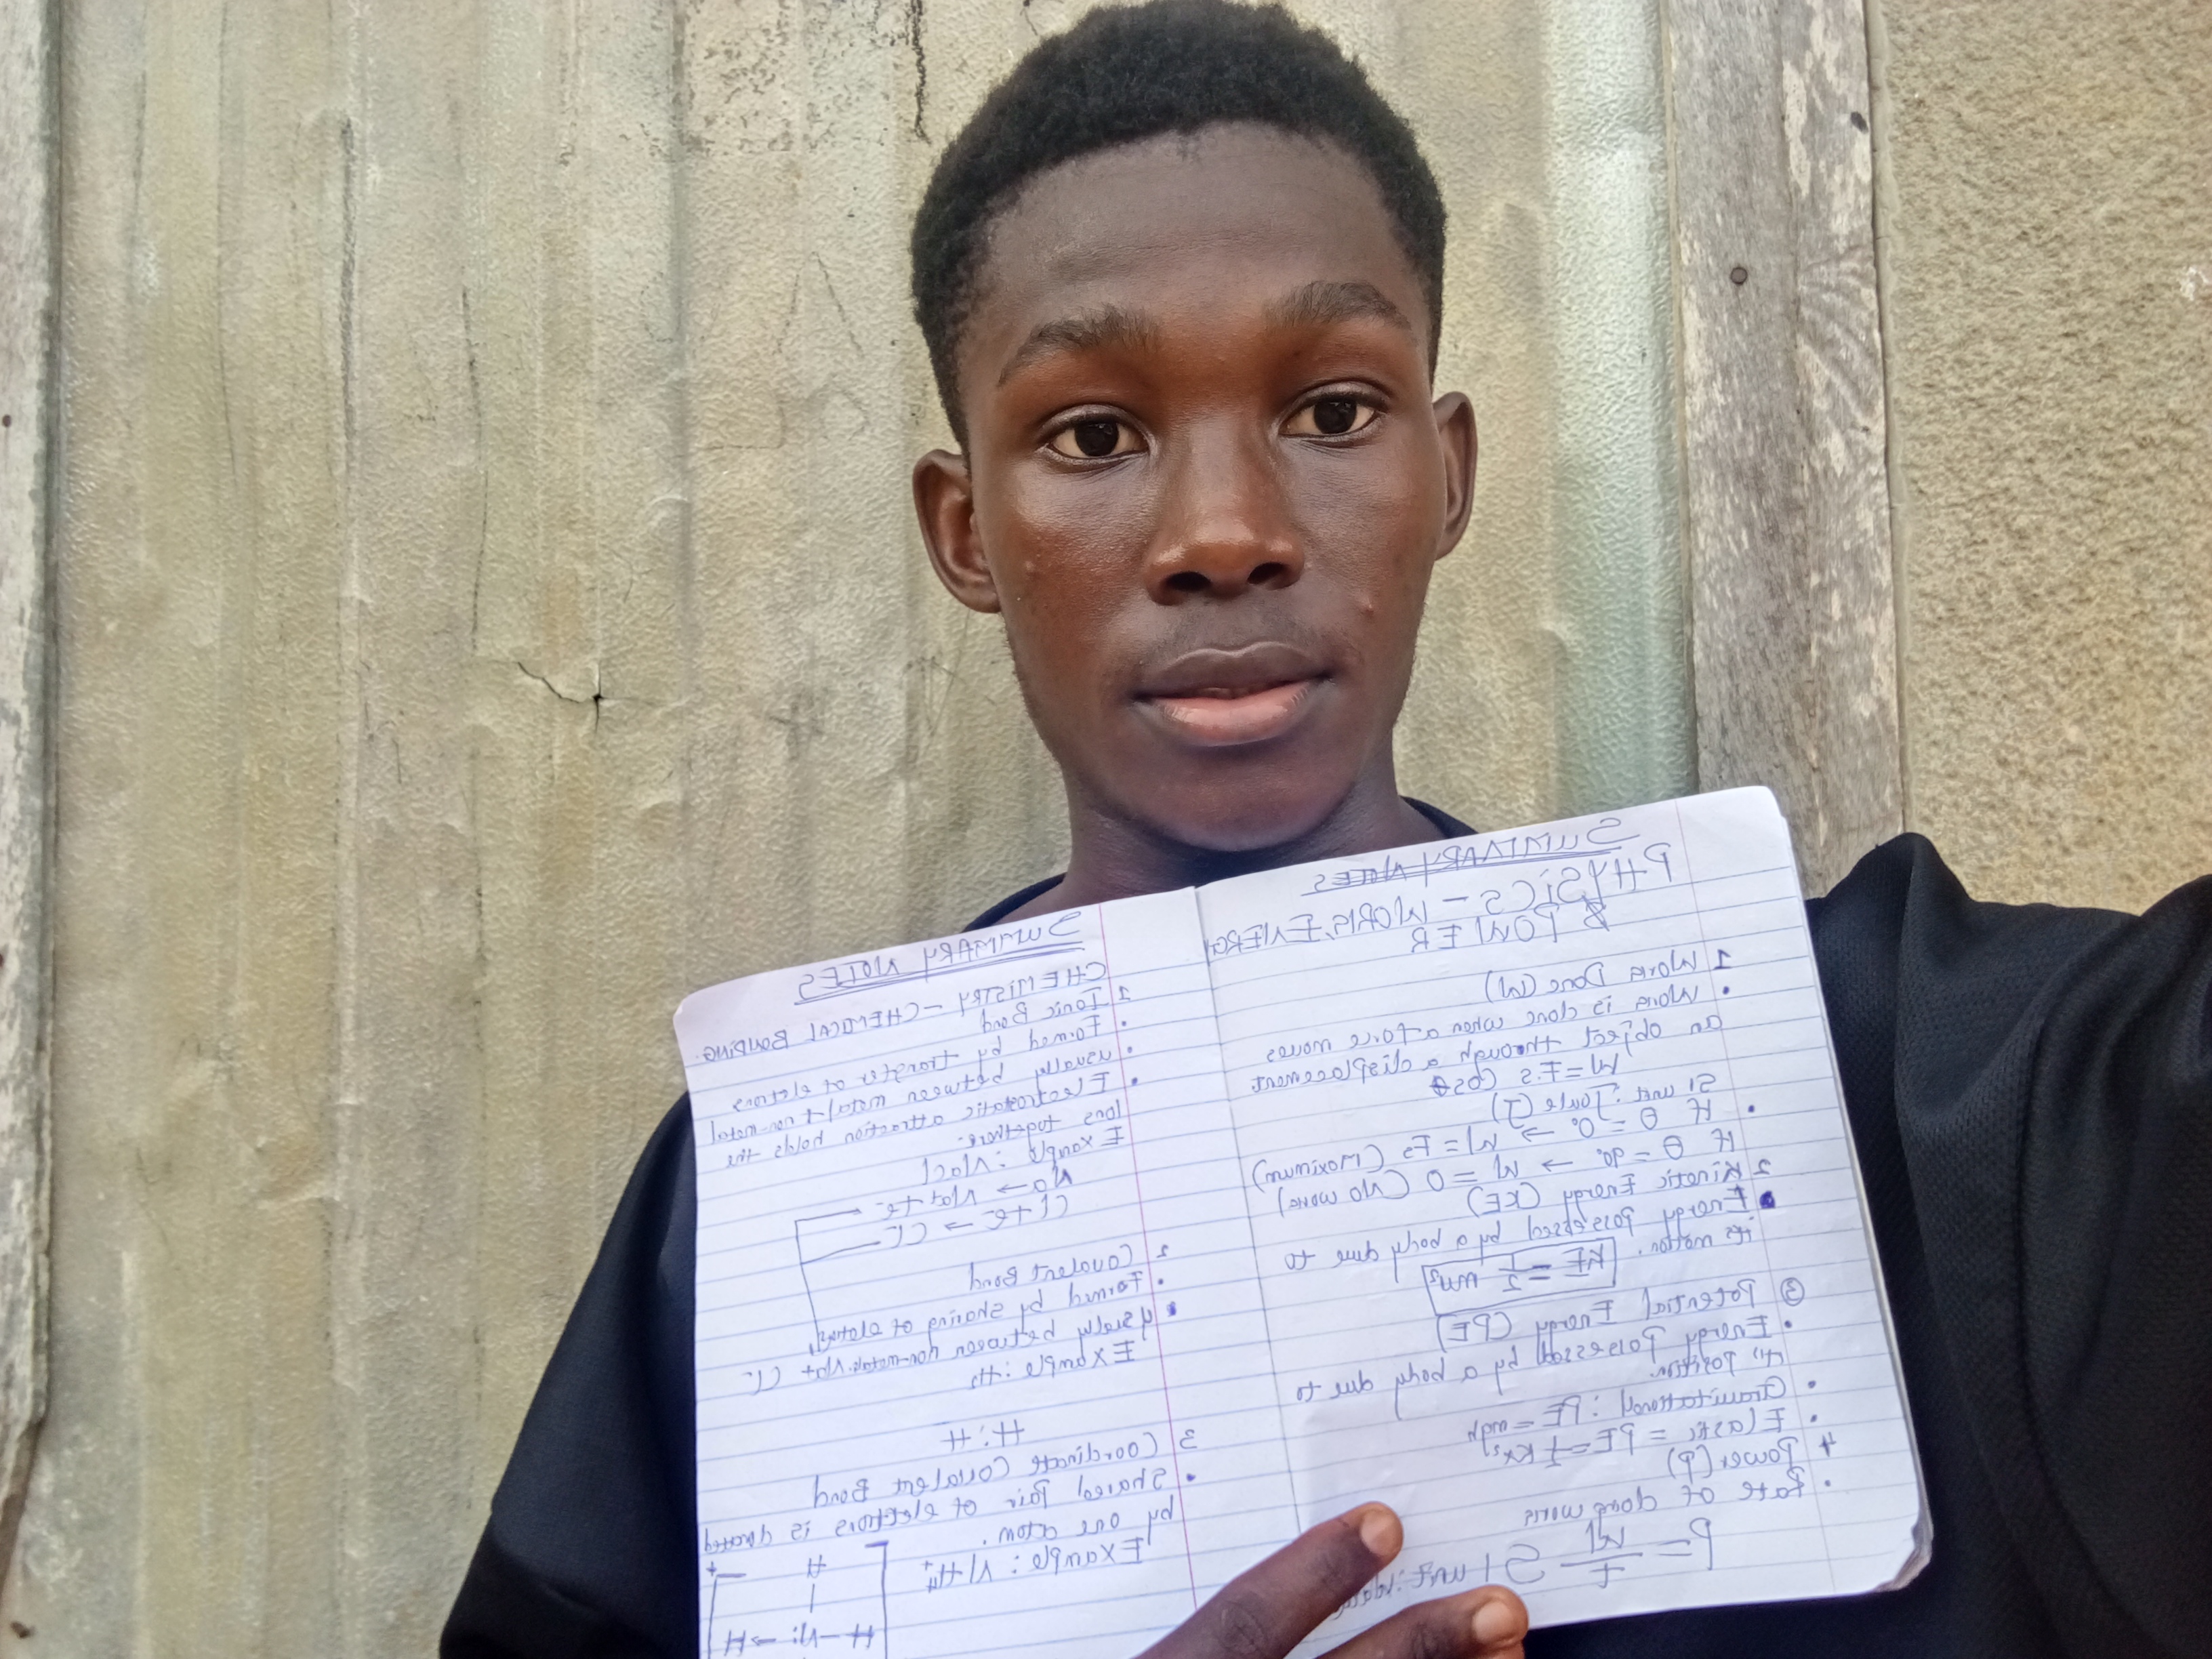 SUMMARY NOTES
PHYSICS - WORK, ENERGY
& POWER
1 Work Done (W)
• Work is done when a force moves
an object through a displacement
W = F.s Cos θ
SI unit: Joule (J)
• If θ = 0° → W = Fs (Maximum)
If θ = 90° → W = 0 (No work)
2 Kinetic Energy (KE)
• Energy possessed by a body due to
its motion.
KE = 1/2 mv²
③ Potential Energy (PE)
• Energy Possessed by a body due to
position
• Gravitational: PE = mgh
• Elastic = PE = 1/2 Kx²
4 Power (P)
• Rate of doing work
P = W/t SI unit:
SUMMARY NOTES
CHEMISTRY - CHEMICAL BONDING.
1 Ionic Bond
• Formed by transfer of electrons
• usually between metal + non-metal
• Electrostatic attraction holds the
Ions together.
Example: Nacl
Na → Nat + e-
Cl + e- → Cl-
2 Covalent Bond
• Formed by sharing of
• between non-metals. Na+ Cl-
Example: H2
H:H
3 Coordinate Covalent Bond
• Shared Pair of electrons is donated
by one atom.
Example: NH4+
H +
H - N: → H